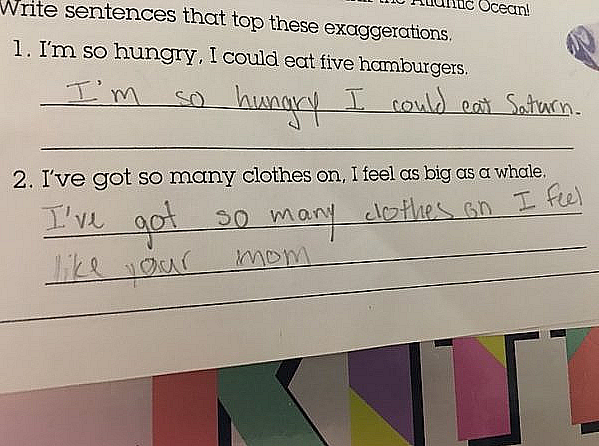 Atlantic Ocean!
Write sentences that top these exaggerations.
1. I'm so hungry, I could eat five hamburgers.
I'm so hungry I could eat Saturn.
2. I've got so many clothes on, I feel as big as a whale.
I've got so many clothes on I feel
like your mom